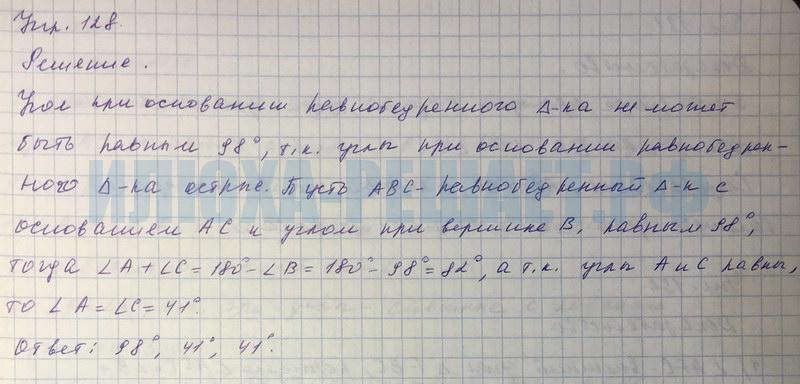 Упр. 128.
Решение.
Угол при основании равнобедренного Δ-ка не может
быть равным 98°, т.к. углы при основании равнобедрен-
ного Δ-ка острые. Пусть ABC- равнобедренный Δ-к с
основанием AC и углом при вершине B, равным 98°,
тогда ∠A+∠C=180°-∠B=180°-98°=82°, а т.к. углы A и C равны,
то ∠A=∠C=41°.
Ответ: 98°, 41°, 41°.